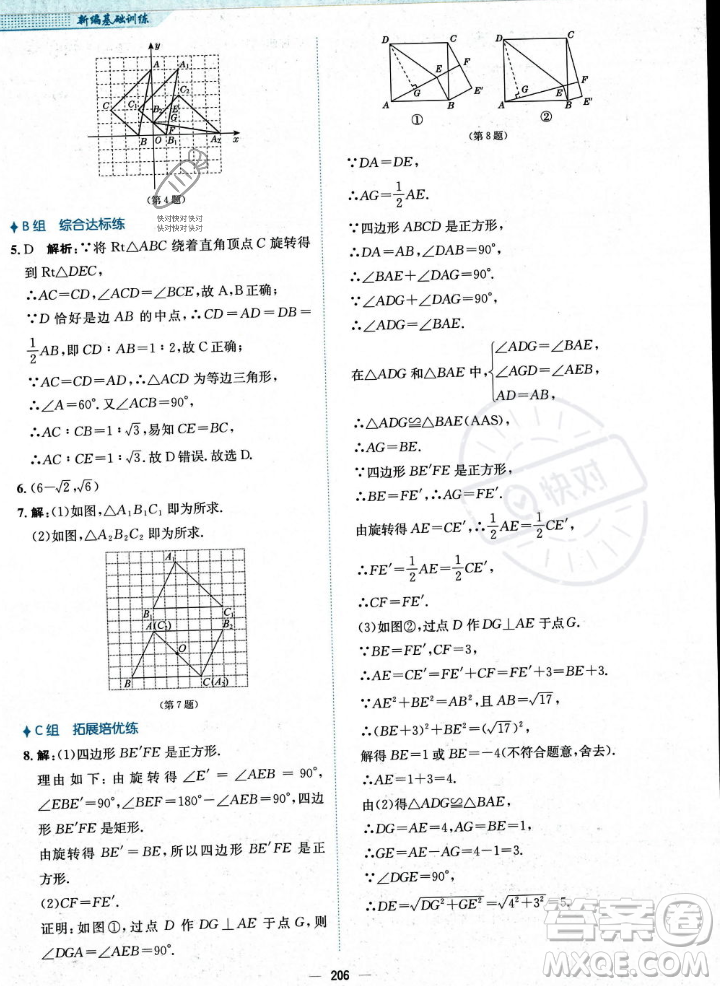 新编基础训练
y
A A₁
C₂
C C₁ B₂ E
G
F
B O B₁ A₂ x
(第4题)
快对快对快对
快对快对快对
B组 综合达标练
5. D 解析:∵将 Rt△ABC 绕着直角顶点 C 旋转得
到 Rt△DEC,
∴AC=CD,∠ACD=∠BCE,故 A,B 正确;
∵D 恰好是边 AB 的中点,∴CD=AD=DB=
1/2 AB,即 CD∶AB=1∶2,故 C 正确;
∵AC=CD=AD,∴△ACD 为等边三角形,
∴∠A=60°. 又∠ACB=90°,
∴AC∶CB=1∶√3,易知 CB=CE,
∴AC∶CE=1∶√3. 故 D 错误. 故选 D.
6. (6-√2,√6)
7. 解:(1)如图,△A₁B₁C₁ 即为所求.
(2)如图,△A₂B₂C₂ 即为所求.
A₁
B₁ C₁
A(C₂) B₂
O
B C(A₂)
(第7题)
C组 拓展培优练
8. 解:(1)四边形 BE′FE 是正方形.
理由如下:由旋转得∠E′=∠AEB=90°,
∠EBE′=90°,∠BEF=180°-∠AEB=90°,四边
形 BE′FE 是矩形.
由旋转得 BE′=BE,所以四边形 BE′FE 是正
方形.
(2)CF=FE′.
证明:如图①,过点 D 作 DG⊥AE 于点 G,则
∠DGA=∠AEB=90°.
D C
E F
G
A B E′
①
D C
F
G E
A B E′
②
(第8题)
∵DA=DE,
∴AG=1/2 AE.
∵四边形 ABCD 是正方形,
∴DA=AB,∠DAB=90°,
∴∠BAE+∠DAG=90°.
∵∠ADG+∠DAG=90°,
∴∠ADG=∠BAE.
在△ADG 和△BAE 中,{∠ADG=∠BAE,
∠AGD=∠AEB,
AD=AB,
∴△ADG≌△BAE(AAS),
∴AG=BE.
∵四边形 BE′FE 是正方形,
∴BE=FE′,∴AG=FE′.
由旋转得 AE=CE′,∴1/2 AE=1/2 CE′,
∴FE′=1/2 AE=1/2 CE′,
∴CF=FE′.
(3)如图②,过点 D 作 DG⊥AE 于点 G.
∵BE=FE′,CF=3,
∴AE=CE′=FE′+CF=BE+3.
∵AE²+BE²=AB²,且 AB=√17,
∴(BE+3)²+BE²=(√17)²,
解得 BE=1或 BE=-4(不符合题意,舍去).
∴AE=1+3=4.
由(2)得△ADG≌△BAE,
∴DG=AE=4,AG=BE=1,
∴GE=AE-AG=4-1=3.
∵∠DGE=90°,
∴DE=√(DG²+GE²)=√(4²+3²)=5.
快对
206
答案圈
MXQE.COM